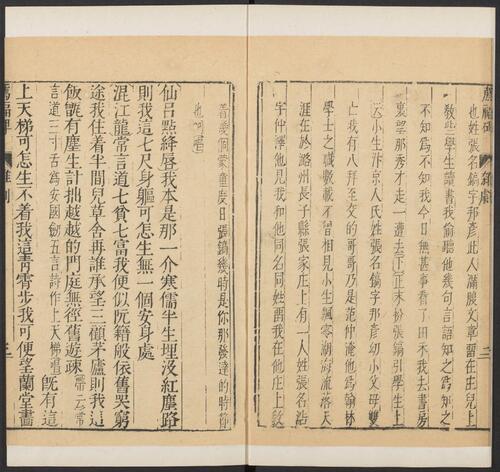 薦福碑
雜劇
二
也姓張名鎬字邦彥此人滿腹文章畱在莊兒上
教些學生讀書我偷聽他幾句言語知之為知之
不知為不知我今日無甚事看了田禾我去書房
裏望那秀才走一遭去正末扮張鎬引學生上
云小生汴京人氏姓張名鎬字邦彥幼小父母雙
亡我有八拜至交的哥哥乃是范仲淹他為翰林
學士之職數載不曾相見小生飄零湖海流落天
涯在於潞州長子縣張家莊上有一人姓張名浩
字仲澤他見我和他同名同姓畱我在他莊上教
着幾個蒙童度日張鎬幾時是你那發達的時節
也呵唱
仙呂點絳唇我本是那一介寒儒半生埋沒紅塵路
則我這七尺身軀可怎生無一個安身處
混江龍常言道七貧七富我便似阮籍般依舊哭窮
途我住着半間兒草舍再誰承望三顧茅廬則我這
飯甑有塵生計拙越越的門庭無徑舊遊疎帶云常
言道三寸舌為安國劍五言詩作上天梯唱既有這
上天梯可怎生不着我這青霄步我可便望蘭堂畵
薦福碑
雜劇
三